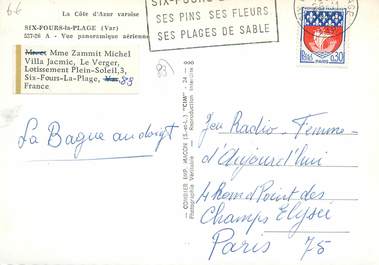 66
La Côte d'Azur varoise
SIX-FOURS-la-PLAGE (Var)
527-26 A - Vue panoramique aérienne
Mme Zammit Michel
Villa Jacmic, Le Verger,
Lotissement Plein-Soleil,3,
Six-Fours-La-Plage, Var 83
France
SIX-FOURS
SES PINS SES FLEURS
SES PLAGES DE SABLE
REPUBLIQUE FRANÇAISE
POSTES
0,30
PARIS
83
La Bague au doigt
COMBIER IMP. MACON (S.-et-L.) "CIM"
Photographie Véritable - Reproduction interdite
Jeu Radio-Femme-
d'Aujourd'hui
4 Rond Point des
Champs Elysée
Paris 75